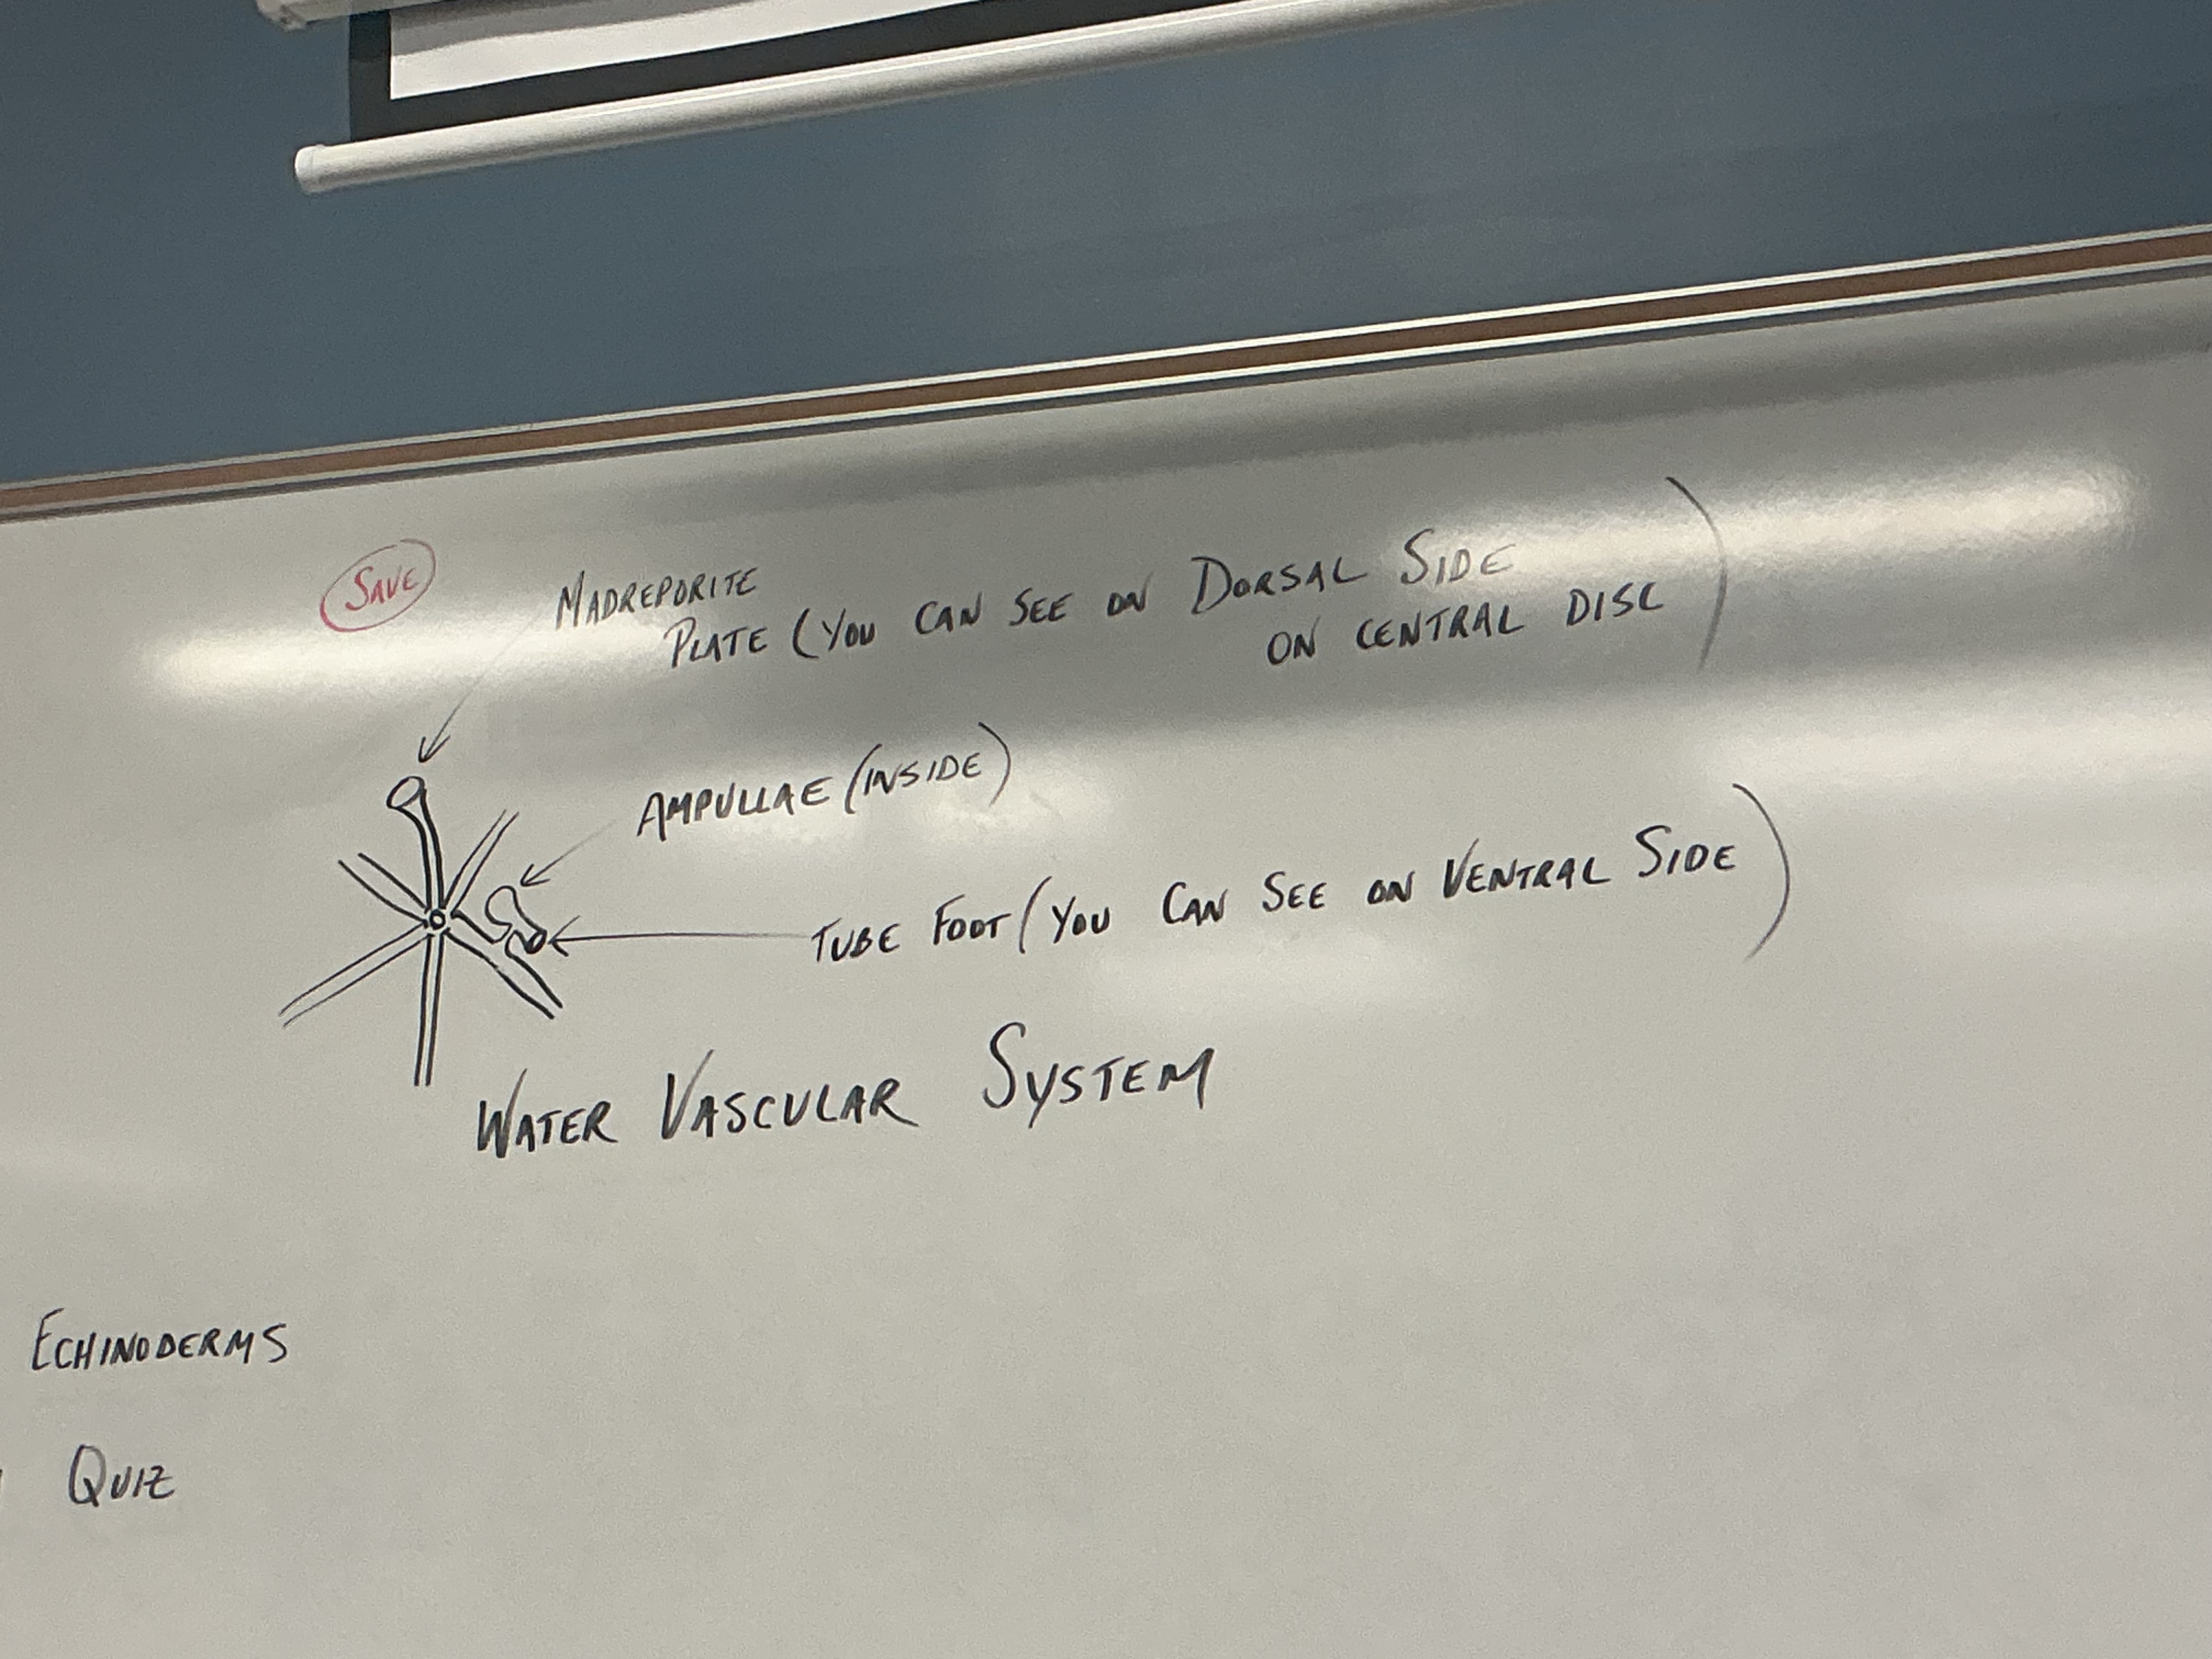 SAVE
MADREPORITE
PLATE (YOU CAN SEE ON DORSAL SIDE
ON CENTRAL DISC)
AMPULLAE (INSIDE)
TUBE FOOT (YOU CAN SEE ON VENTRAL SIDE)
WATER VASCULAR SYSTEM
ECHINODERMS
QUIZ